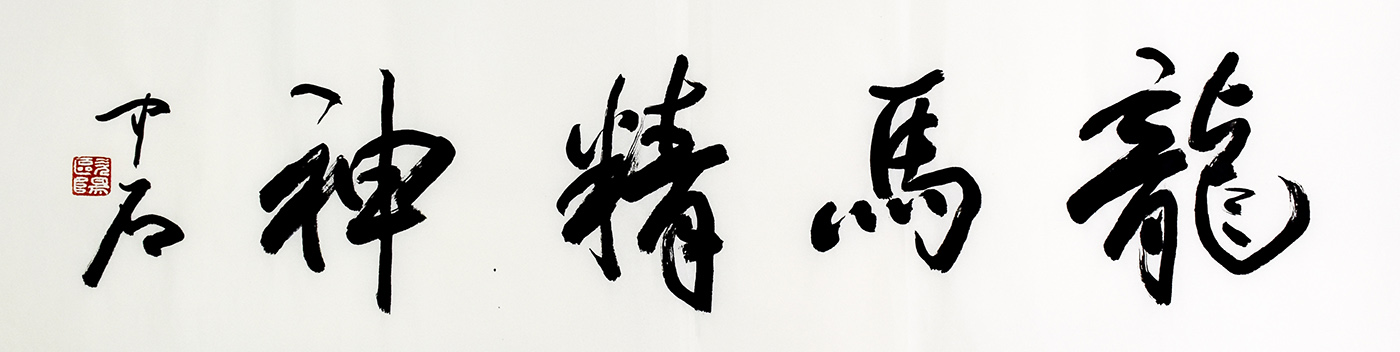 龍馬精神
中石